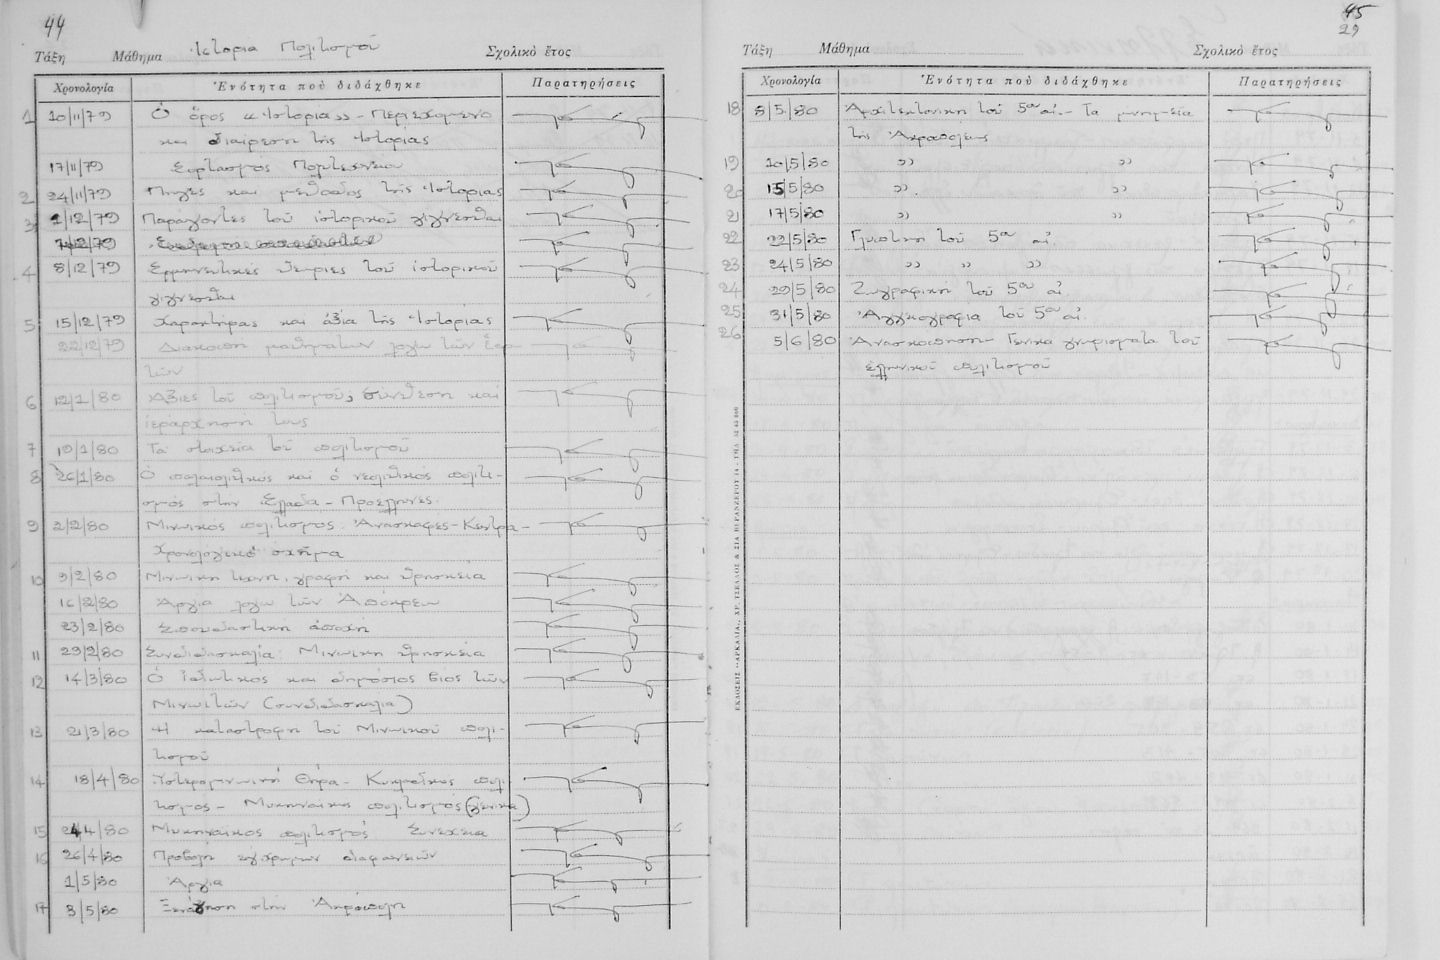 44
Τάξη Μάθημα Ἱστορία Πολιτισμοῦ Σχολικὸ ἔτος
Χρονολογία Ἑνότητα ποὺ διδάχθηκε Παρατηρήσεις
1 10/11/79 Ὁ ὅρος «Ἱστορία» - Περιεχόμενο
και διαίρεση τῆς Ἱστορίας
17/11/79 Εορτασμός Πολυτεχνείου
2 24/11/79 Πηγές και μέθοδος τῆς Ἱστορίας
3 1/12/79 Παράγοντες τοῦ ἱστορικοῦ γίγνεσθαι
7/12/79
4 8/12/79 Ερμηνευτικές θεωρίες τοῦ ἱστορικοῦ
γίγνεσθαι
5 15/12/79 Χαρακτήρας και ἀξία τῆς Ἱστορίας
22/12/79 Διακοπή μαθημάτων λόγω τῶν Ἑορ-
τῶν
6 12/1/80 Ἀξίες τοῦ πολιτισμοῦ, σύνθεση και
ἱεράρχησή τους
7 19/1/80 Τα στοιχεία τοῦ πολιτισμοῦ
8 26/1/80 Ὁ παλαιολιθικός και ὁ νεολιθικός πολιτι-
σμός στην Ἑλλάδα - Προέλληνες.
9 2/2/80 Μινωικός πολιτισμός. Ἀνασκαφές - Κέντρα -
Χρονολογικό σχῆμα
10 9/2/80 Μινωική τέχνη, γραφή και θρησκεία
16/2/80 Ἀργία λόγω τῶν Ἀπόκρεω
23/2/80 Σπουδαστική ἀποχή
11 29/2/80 Συνδιδασκαλία: Μινωική θρησκεία
12 14/3/80 Ὁ ἰδιωτικός και δημόσιος βίος τῶν
Μινωιτῶν (συνδιδασκαλία)
13 21/3/80 Ἡ καταστροφή τοῦ Μινωικοῦ πολι-
τισμοῦ
14 18/4/80 Ὑστερομινωική Θήρα - Κυκλαδικός πολι-
τισμός - Μυκηναϊκός πολιτισμός (γενικά)
15 24/4/80 Μυκηναϊκός πολιτισμός Συνέχεια
16 26/4/80 Προβολή ἐγχρώμων διαφανειῶν
1/5/80 Ἀργία
17 3/5/80 Ξενάγηση στην Ἀκρόπολη
45
29
Τάξη Μάθημα Σχολικὸ ἔτος
Χρονολογία Ἑνότητα ποὺ διδάχθηκε Παρατηρήσεις
18 8/5/80 Ἀρχιτεκτονική τοῦ 5ου αἰ. - Τα μνημεία
τῆς Ἀκροπόλεως
19 10/5/80 ,, ,,
20 15/5/80 ,, ,,
21 17/5/80 ,, ,,
22 22/5/80 Γλυπτική τοῦ 5ου αἰ.
23 24/5/80 ,, ,, ,,
24 29/5/80 Ζωγραφική τοῦ 5ου αἰ.
25 31/5/80 Ἀγγειογραφία τοῦ 5ου αἰ.
26 5/6/80 Ἀνασκόπηση - Γενικά γνωρίσματα τοῦ
ἑλληνικοῦ πολιτισμοῦ